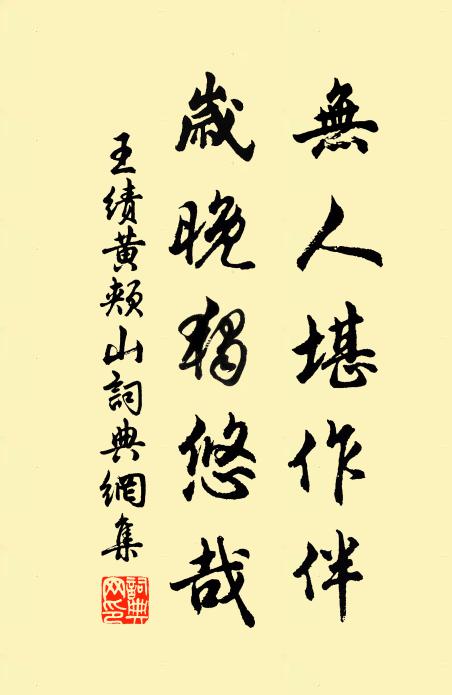 無人堪作伴
歲晚獨悠哉
王績黃頰山詞典網集
詞典網印